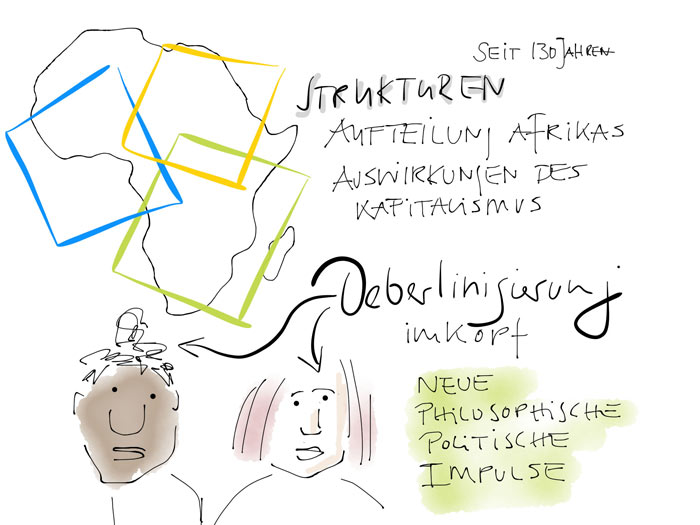 SEIT 130 JAHREN
STRUKTUREN
AUFTEILUNG AFRIKAS
AUSWIRKUNGEN DES
KAPITALISMUS
Deberlinisierung
im Kopf
NEUE
PHILOSOPHISCHE
POLITISCHE
IMPULSE